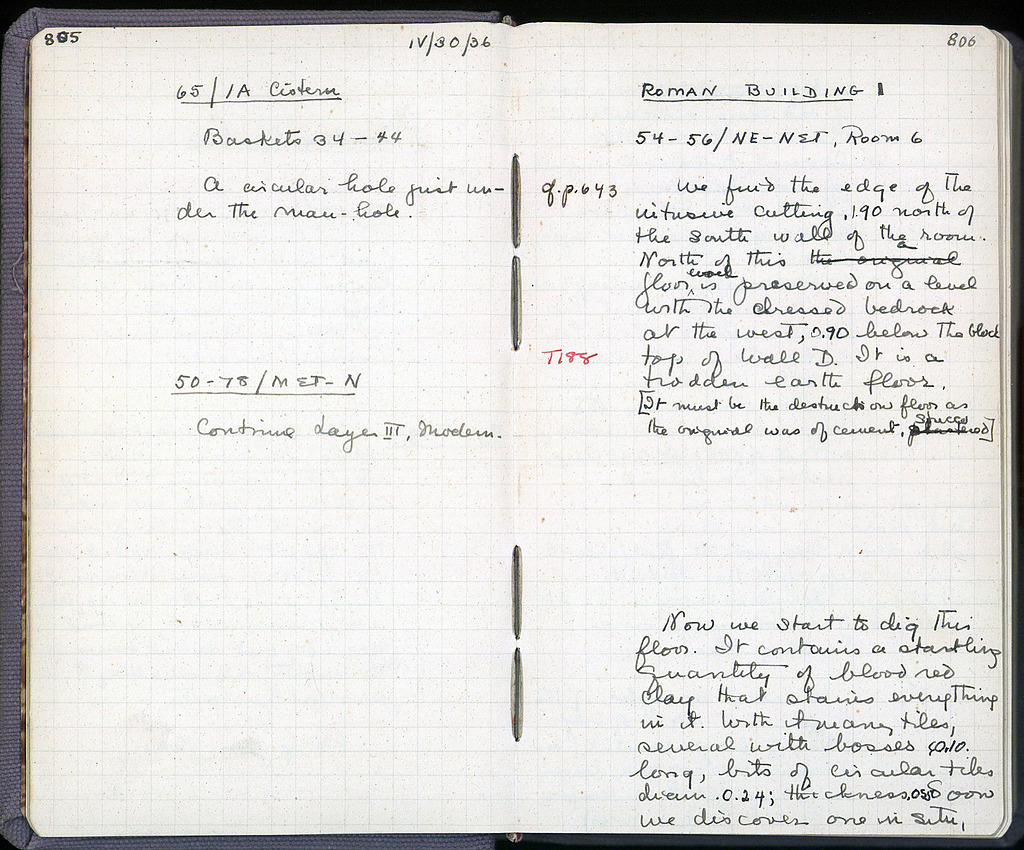 805
IV/30/36
65/1A Cistern
Baskets 34-44
A circular hole just un-
der the man-hole.
50-78/MET-N
Continue Layer III, Modern.
806
ROMAN BUILDING I
54-56/NE-NET, Room 6
cf. p. 643
We find the edge of the
intrusive cutting, 1.90 north of
the south wall of the room.
North of this the original a
floor is preserved on a level
with the dressed bedrock
at the west, 0.90 below the block
T188
top of wall D. It is a
trodden earth floor.
[It must be the destruction floor as
the original was of cement, plastered stucco]
Now we start to dig this
floor. It contains a startling
quantity of blood red
clay that stains everything
in it. With it many tiles,
several with bosses 0.10.
long, bits of circular tiles
diam. 0.24; thickness, Soon
we discover one in situ,